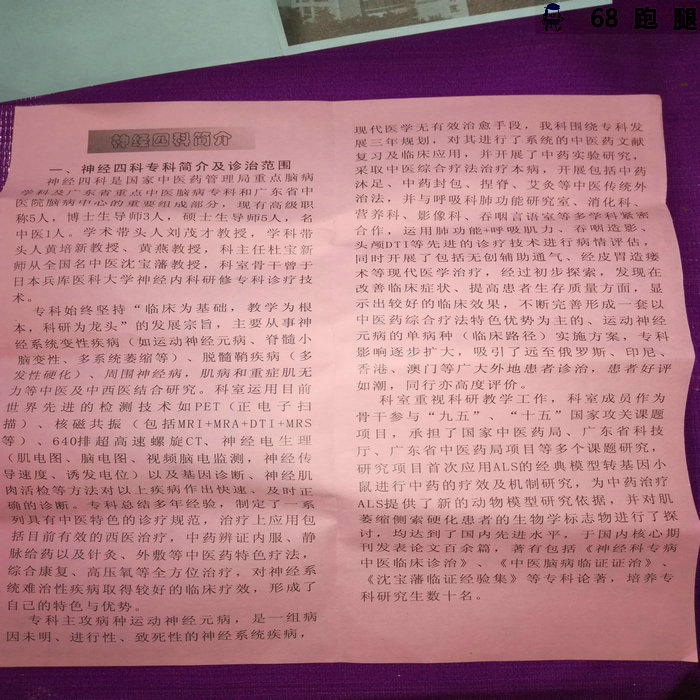 68 跑 腿
神经四科简介
一、神经四科专科简介及诊治范围
神经四科是国家中医药管理局重点脑病
学科及广东省重点中医脑病专科和广东省中
医院脑病中心的重要组成部分，现有高级职
称5人，博士生导师3人，硕士生导师5人，名
中医1人。学术带头人刘茂才教授，学科带
头人黄培新教授、黄燕教授，科主任杜宝新
师从全国名中医沈宝藩教授，科室骨干曾于
日本兵库医科大学神经内科研修专科诊疗技
术。
专科始终坚持“临床为基础，教学为根
本，科研为龙头”的发展宗旨，主要从事神
经系统变性疾病（如运动神经元病、脊髓小
脑变性、多系统萎缩等）、脱髓鞘疾病（多
发性硬化）、周围神经病，肌病和重症肌无
力等中医及中西医结合研究。科室运用目前
世界先进的检测技术如PET（正电子扫
描）、核磁共振（包括MRI+MRA+DTI+MRS
等）、640排超高速螺旋CT、神经电生理
（肌电图、脑电图、视频脑电监测，神经传
导速度、诱发电位）以及基因诊断、神经肌
肉活检等方法对以上疾病作出快速、及时正
确的诊断。专科总结多年经验，制定了一系
列具有中医特色的诊疗规范，治疗上应用包
括目前有效的西医治疗，中药辨证内服、静
脉给药以及针灸、外敷等中医药特色疗法，
综合康复、高压氧等全方位治疗，对神经系
统难治性疾病取得较好的临床疗效，形成了
自己的特色与优势。
专科主攻病种运动神经元病，是一组病
因未明、进行性、致死性的神经系统疾病，
现代医学无有效治愈手段，我科围绕专科发
展三年规划，对其进行了系统的中医药文献
复习及临床应用，并开展了中药实验研究，
采取中医综合疗法治疗本病，开展包括中药
沐足、中药封包、捏脊、艾灸等中医传统外
治法，并与呼吸科肺功能研究室、消化科、
营养科、影像科、吞咽言语室等多学科紧密
合作，运用肺功能+呼吸肌力、吞咽造影、
头颅DTI等先进的诊疗技术进行病情评估，
同时开展了包括无创辅助通气、经皮胃造瘘
术等现代医学治疗，经过初步探索，发现在
改善临床症状、提高患者生存质量方面，显
示出较好的临床效果，不断完善形成一套以
中医药综合疗法特色优势为主的、运动神经
元病的单病种（临床路径）实施方案，专科
影响逐步扩大，吸引了远至俄罗斯、印尼、
香港、澳门等广大外地患者诊治，患者好评
如潮，同行亦高度评价。
科室重视科研教学工作，科室成员作为
骨干参与“九五”、“十五”国家攻关课题
项目，承担了国家中医药局、广东省科技
厅、广东省中医药局项目等多个课题研究，
研究项目首次应用ALS的经典模型转基因小
鼠进行中药的疗效及机制研究，为中药治疗
ALS提供了新的动物模型研究依据，并对肌
萎缩侧索硬化患者的生物学标志物进行了探
讨，均达到了国内先进水平，于国内核心期
刊发表论文百余篇，著有包括《神经科专病
中医临床诊治》、《中医脑病临证证治》、
《沈宝藩临证经验集》等专科论著，培养专
科研究生数十名。